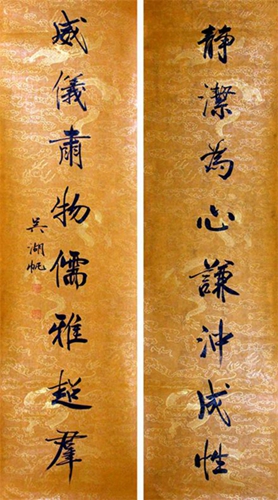 静潔為心謙沖成性
威儀肅物儒雅超羣
吳湖帆